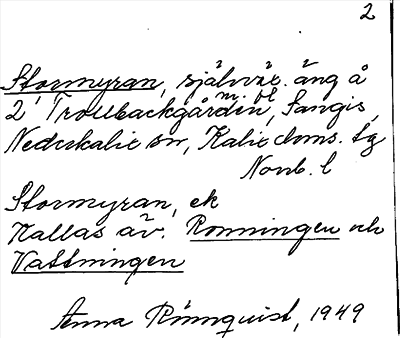 2
Stormyran, självväx. äng å
2 Trollbackgården m. fl., Sangis,
Nederkalix sn, Kalix doms. tg
Norrb. l
Stormyran, ek
Kallas äv. Ronningen och
Vattningen
Anna Rönnquist, 1949